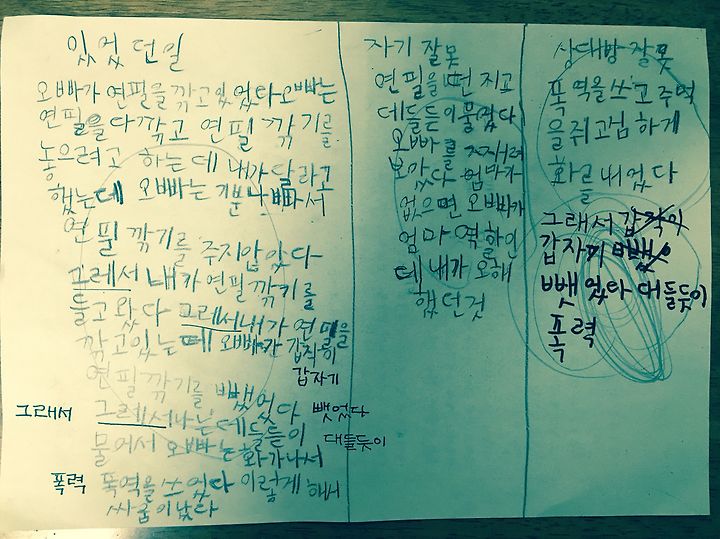 있었던일
오빠가 연필을 깎고있었다 오빠는
연필을 다깎고 연필 깎기를
놓으려고 하는데 내가 달라고
했는데 오빠는 기분나빠서
연필 깎기를 주지안았다
그레서 내가 연필 깎키를
들고 왔다 그레서내가 연필을
깎고있는데 오빠가 갑작이
갑자기
연필 깎기를 빼쌨어
그래서 그레서나는데들듣이 뺏었다
물어서 오빠는화가나서 대들듯이
폭력 폭역을 쓰었다 이렇게 해서
싸움이났다
자기 잘못
연필을 떤지고
데들듣이물었다
오빠를
보았다 엄마가
없으면 오빠가
엄마 역할인
데 내가 오해
했던것
상대방 잘못
폭역을쓰고주먹
을쥐고심하게
화를 내었다
그래서 갑작이
갑자기
뺏었다 대들듯이
폭력